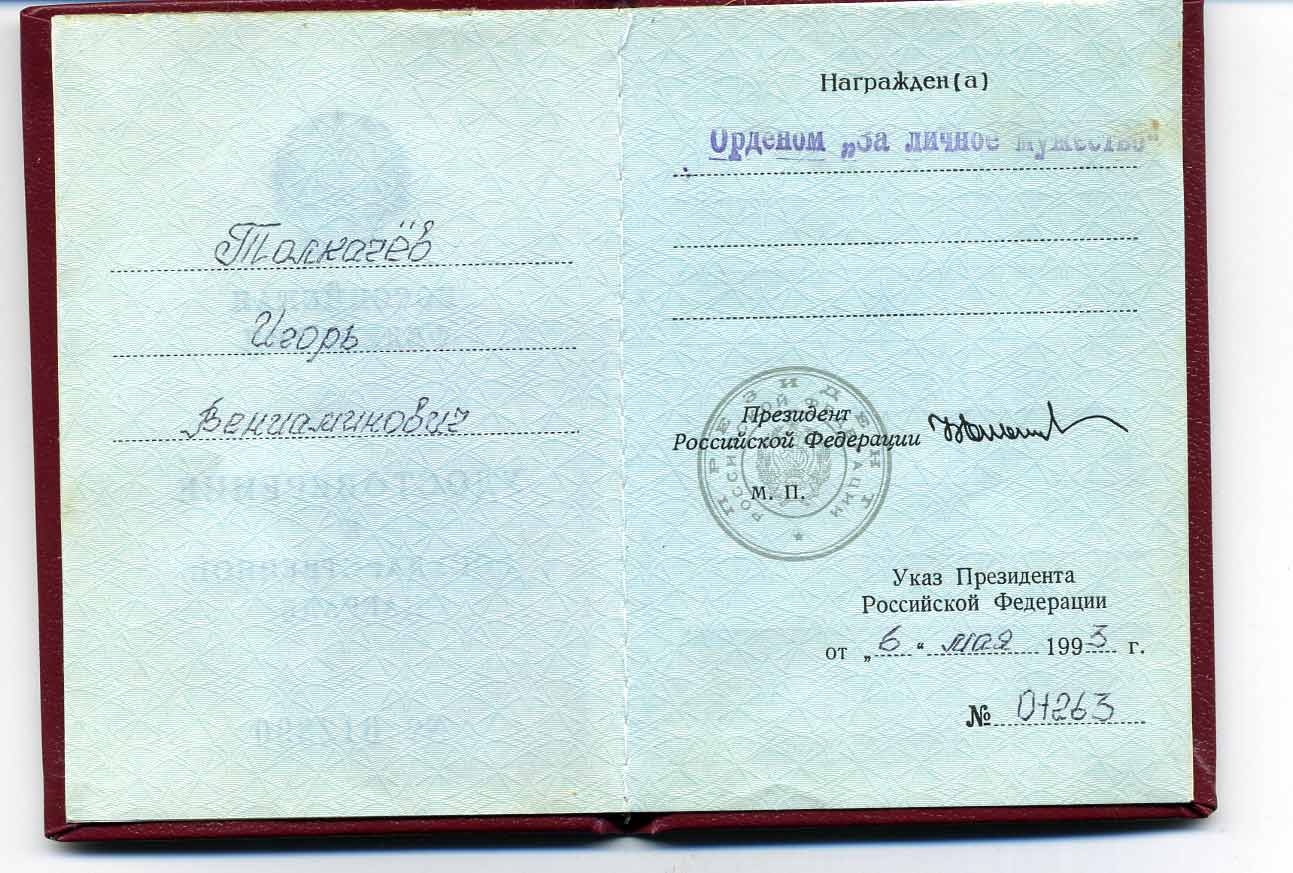 Толкачёв
Игорь
Вениаминович
Награжден(а)
Орденом „За личное мужество“
ПРЕЗИДЕНТ
РОССИЙСКОЙ ФЕДЕРАЦИИ
Президент
Российской Федерации
М. П.
Указ Президента
Российской Федерации
от „6“ мая 1993 г.
№ 01263